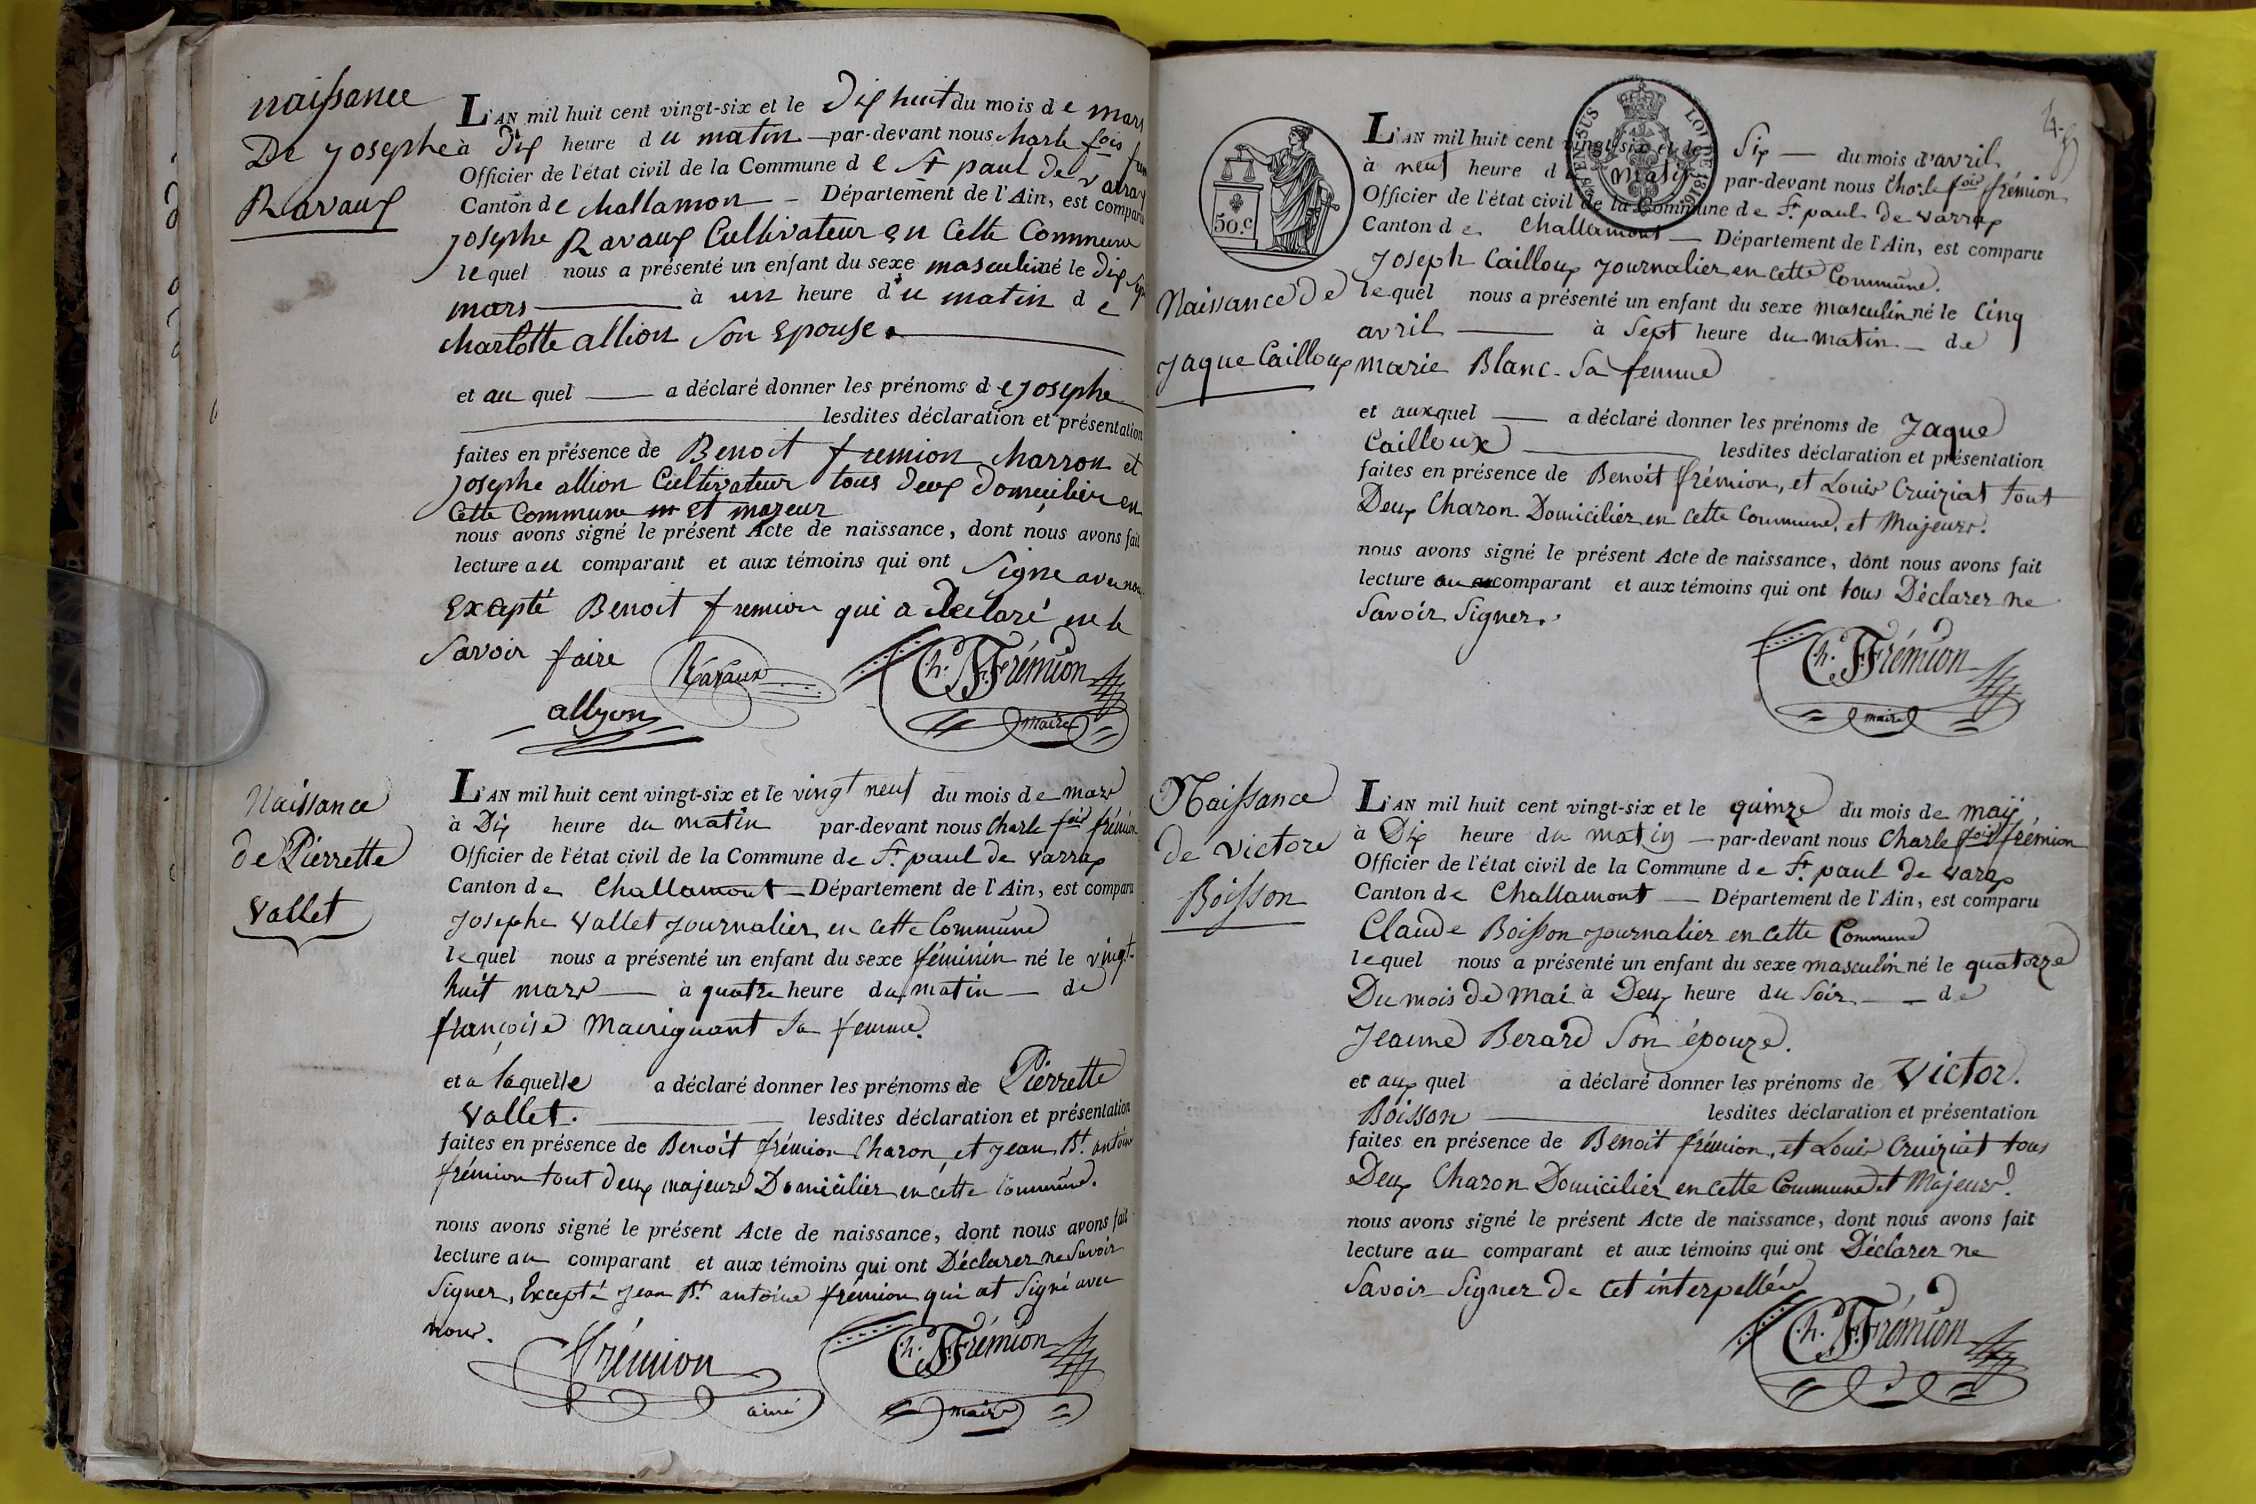 naissance
De Josephe
Ravaux
L'AN mil huit cent vingt-six et le Dix huit du mois de mars
à dix heure du matin par-devant nous charle fois
Officier de l'état civil de la Commune de St paul de varax
Canton de challamon Département de l'Ain, est comparu
josephe Ravaux Cultivateur en Cette Commune
lequel nous a présenté un enfant du sexe masculin né le dix sept
mars à un heure du matin de
charlotte allion Son Epouse.
et au quel a déclaré donner les prénoms de josephe
lesdites déclaration et présentation
faites en présence de Benoit fremion charron et
josephe allion Cultivateur tous deux domicilier en
Cette Commune et majeur
nous avons signé le présent Acte de naissance, dont nous avons fait
lecture au comparant et aux témoins qui ont Signe avec nous
Excepté Benoit fremion qui a declaré ne le
Savoir faire
Ravaux
Ch. F. Frémion
allyon
maire
Naissance
de Pierrette
Vallet
L'AN mil huit cent vingt-six et le vingt neuf du mois de mars
à Dix heure du matin par-devant nous Charle fois frémion
Officier de l'état civil de la Commune de St. paul de varax
Canton de Challamont Département de l'Ain, est comparu
Josephe Vallet Journalier en cette Commune
lequel nous a présenté un enfant du sexe féminin né le vingt-
huit mars à quatre heure du matin de
françoise Macriguant sa femme.
et a laquelle a déclaré donner les prénoms de Pierrette
Vallet. lesdites déclaration et présentation
faites en présence de Benoit frémion Charon, et Jean Bt. antoine
frémion tout deux majeurs Domicilier en cette Commune.
nous avons signé le présent Acte de naissance, dont nous avons fait
lecture au comparant et aux témoins qui ont Déclarer ne Savoir
Signer, Excepté Jean Bt. antoine frémion qui at Signé avec
nous.
frémion
ainé
Ch. F. Frémion
maire
4.
50.c
LOI DE 1816
L'AN mil huit cent vingt-six et le Six du mois d'avril
à neuf heure du matin par-devant nous Charle fois frémion
Officier de l'état civil de la Commune de St. paul de varax
Canton de Challamont Département de l'Ain, est comparu
Joseph Cailloux Journalier en cette Commune.
Naissance de
Jaque Cailloux
lequel nous a présenté un enfant du sexe masculin né le Cinq
avril à Sept heure du matin de
marie Blanc Sa femme
et auxquel a déclaré donner les prénoms de Jaque
Cailloux lesdites déclaration et présentation
faites en présence de Benoit frémion, et Louis Cruiziat tout
Deux Charon Domicilier en cette Commune, et Majeurs.
nous avons signé le présent Acte de naissance, dont nous avons fait
lecture au comparant et aux témoins qui ont tous Déclarer ne
Savoir Signer.
Ch. F. Frémion
maire
Naissance
de victor
Boisson
L'AN mil huit cent vingt-six et le quinze du mois de maij
à Dix heure du matin par-devant nous Charle fois frémion
Officier de l'état civil de la Commune de St. paul de varax
Canton de Challamont Département de l'Ain, est comparu
Claude Boisson Journalier en cette Commune
lequel nous a présenté un enfant du sexe masculin né le quatorze
Du mois de mai à Deux heure du Soir de
Jeanne Berard Son épouze.
et aux quel a déclaré donner les prénoms de Victor.
Boisson lesdites déclaration et présentation
faites en présence de Benoit frémion, et Louis Cruiziat tous
Deux Charon Domicilier en cette Commune et Majeurs.
nous avons signé le présent Acte de naissance, dont nous avons fait
lecture au comparant et aux témoins qui ont Déclarer ne
Savoir Signer de cet interpellés
Ch. F. Frémion